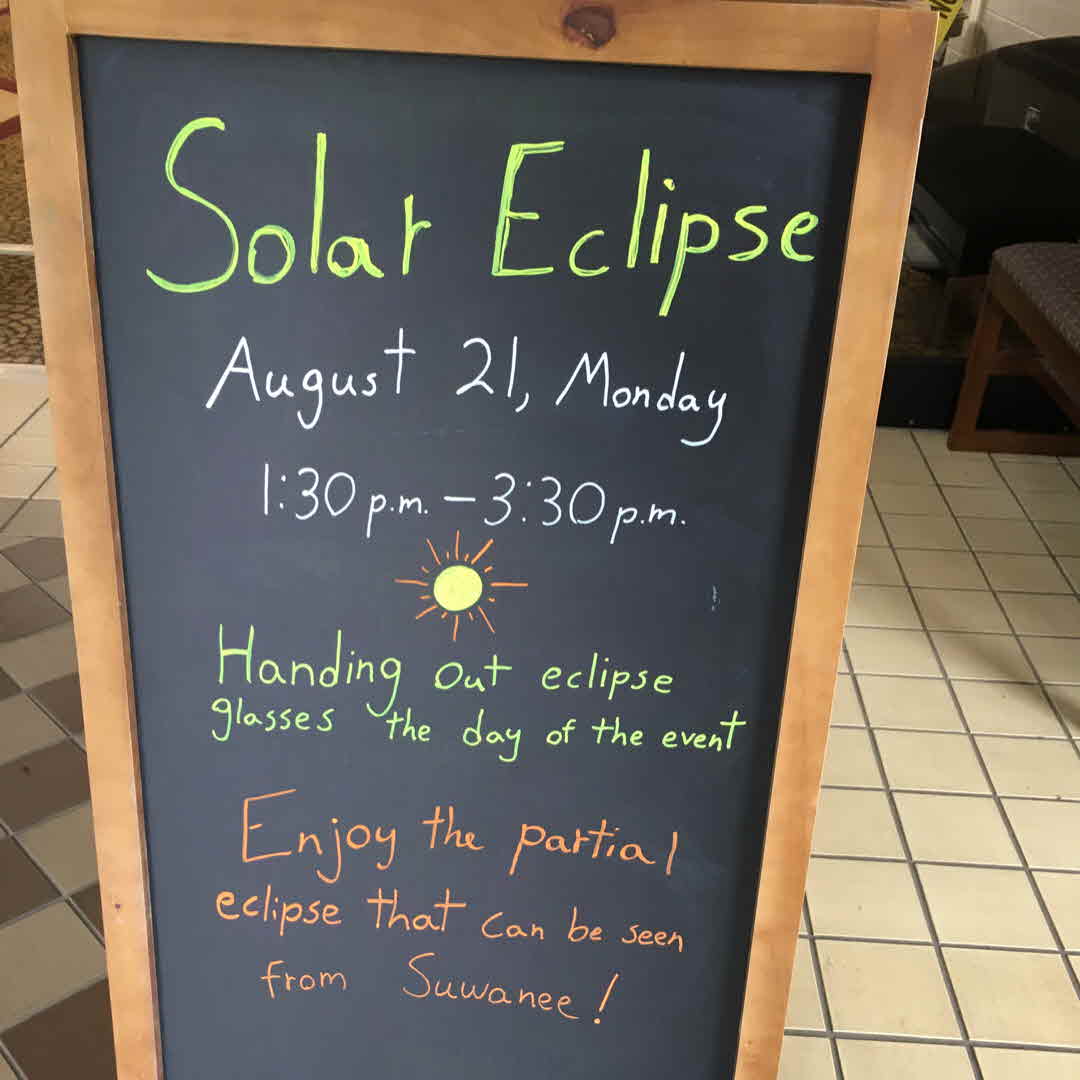 Solar Eclipse
August 21, Monday
1:30 p.m. – 3:30 p.m.
Handing out eclipse
glasses the day of the event
Enjoy the partial
eclipse that can be seen
from Suwanee!